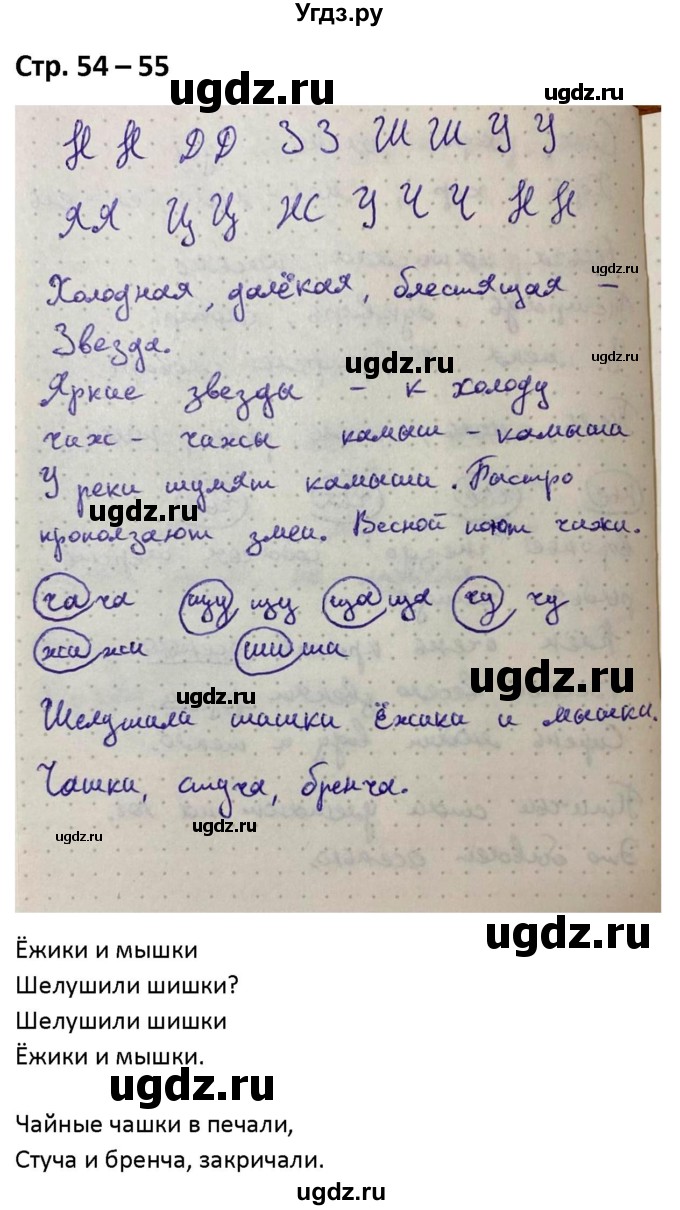 Угдз.ру
Стр. 54 – 55
ugdz.ru
Н Н Д Д З З Ш Ш У У
Я Я Ц Ц Ж У Ч Ч Н Н
ugdz.ru
Холодная, далёкая, блестящая –
Звезда.
ugdz.ru
ugdz.ru
Яркие звезды – к холоду
чиж – чижы камыш – камыши
У реки шумят камыши. Быстро
ugdz.ru
проползают змеи. Весной поют чижи.
ча ча щу щу ща ща чу чу
жи жи ши ши
ugdz.ru
ugdz.ru
Шелушила шишки Ёжики и мышки.
Чашки, стуча, бренча.
ugdz.ru
ugdz.ru
ugdz.ru
Ёжики и мышки
Шелушили шишки?
Шелушили шишки
Ёжики и мышки.
ugdz.ru
Чайные чашки в печали,
Стуча и бренча, закричали.
ugdz.ru